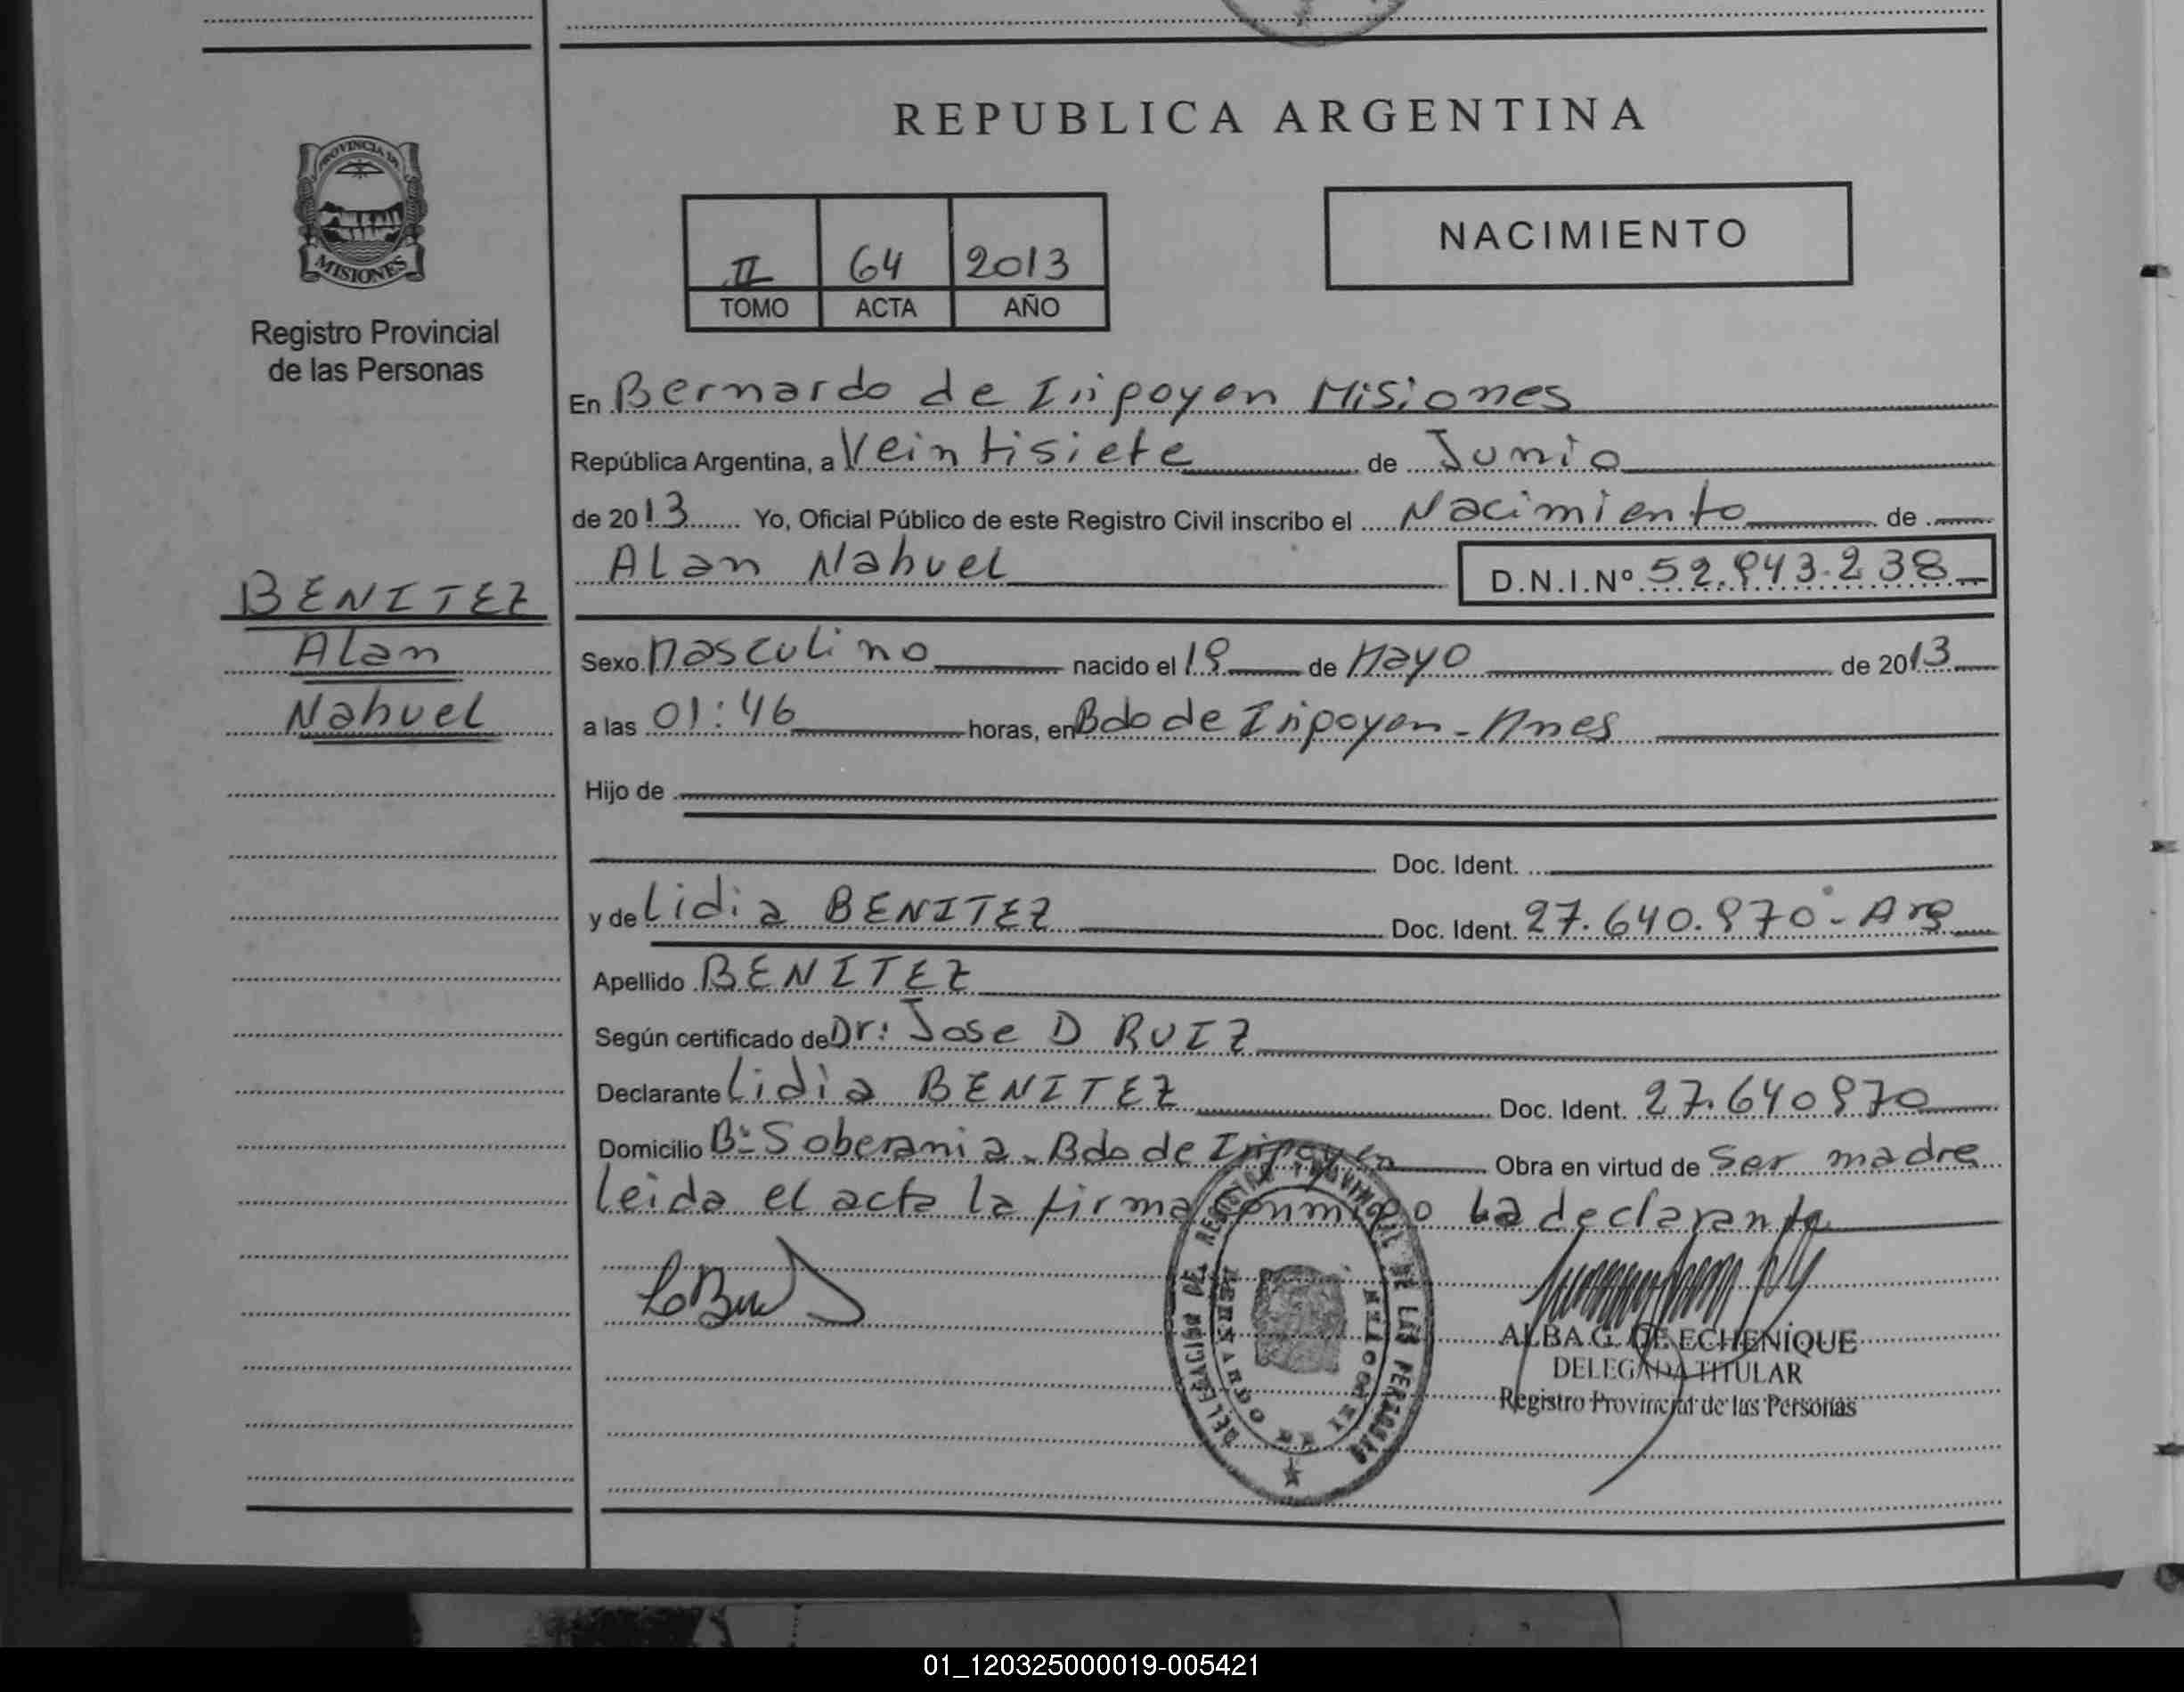 REPUBLICA ARGENTINA
PROVINCIA DE
MISIONES
Registro Provincial
de las Personas
II 64 2013
TOMO ACTA AÑO
NACIMIENTO
En Bernardo de Irigoyen Misiones
República Argentina, a Veintisiete de Junio
de 2013 Yo, Oficial Público de este Registro Civil inscribo el Nacimiento de
Alan Nahuel D.N.I.Nº 52.943.238
BENITEZ
Alan
Nahuel
Sexo Masculino nacido el 19 de Mayo de 2013
a las 01:46 horas, en Bdo de Irigoyen - Mnes
Hijo de
Doc. Ident.
y de Lidia BENITEZ Doc. Ident. 27.640.970 - Arg
Apellido BENITEZ
Según certificado de Dr: Jose D RUIZ
Declarante Lidia BENITEZ Doc. Ident. 27.640970
Domicilio Bº Soberania - Bdo de Irigoyen Obra en virtud de Ser madre
leida el acta la firma conmigo La declarante
DELEGACION DEL REGISTRO PROVINCIAL DE LAS PERSONAS
BERNARDO DE IRIGOYEN
ALBA G. DE ECHENIQUE
DELEGADA TITULAR
Registro Provincial de las Personas
01_120325000019-005421